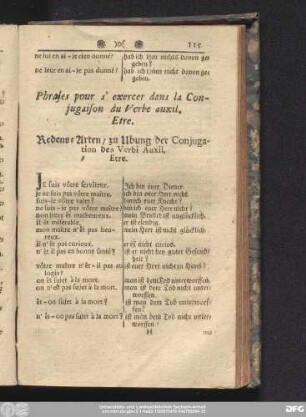 115
ne lui en ai-je rien donné? hab ich ihm nichts davon gegeben?
ne leur en ai-je pas donné? hab ich ihnen nicht davon gegeben.
Phrases pour s'exercer dans la Conjugaison du Verbe auxil.
Etre.
Redens-Arten, zu Ubung der Conjugation des Verbi Auxil.
Etre.
JE suis vôtre serviteur. Ich bin euer Diener.
je ne suis pas vôtre maître. ich bin euer Herr nicht.
suis-je vôtre valet? bin ich euer Knecht?
ne suis-je pas vôtre maître? bin ich euer Herr nicht?
il est miserable. er ist elendig.
mon maître n'est pas heureux. mein Herr ist nicht glücklich.
il n'est pas curieux. er ist nicht curios.
n'est-il pas en bonne santé? ist er nicht bey guter Gesundheit?
vôtre maître n'est-il pas au logis? ist euer Herr nicht zu Hauß?
on est sujet à la mort. man ist dem Tod unterworffen.
on n'est pas sujet à la mort. man ist dem Tod nicht unterworffen.
est-on sujet à la mort? ist man dem Tod unterworffen?
n'est-on pas sujet à la mort? ist man dem Tod nicht unterworffen?